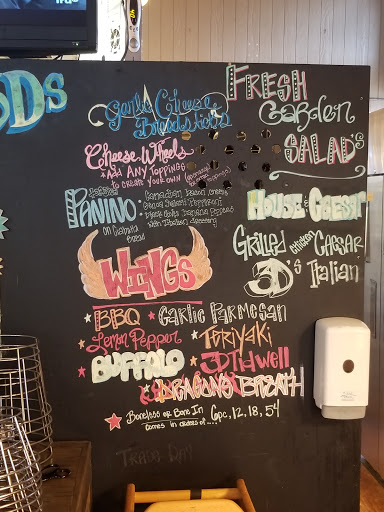 DDS
Garlic Cheese
Breadsticks
Cheese Wheels
• Add Any Toppings
to create your own
Panino:
Canadian Bacon, Cheese
Italian Dressing
on Ciabatta
Bread
WINGS
* BBQ * Garlic Parmesan
* Lemon Pepper * Teriyaki
* BUFFALO * 3D Tidwell
* DRAGONS BREATH
* Boneless or Bone In 6pc, 12, 18, 54
comes in orders of....
FRESH
Garden
SALAD'S
HOUSE CHEF
Grilled chicken Caesar
3D's Italian